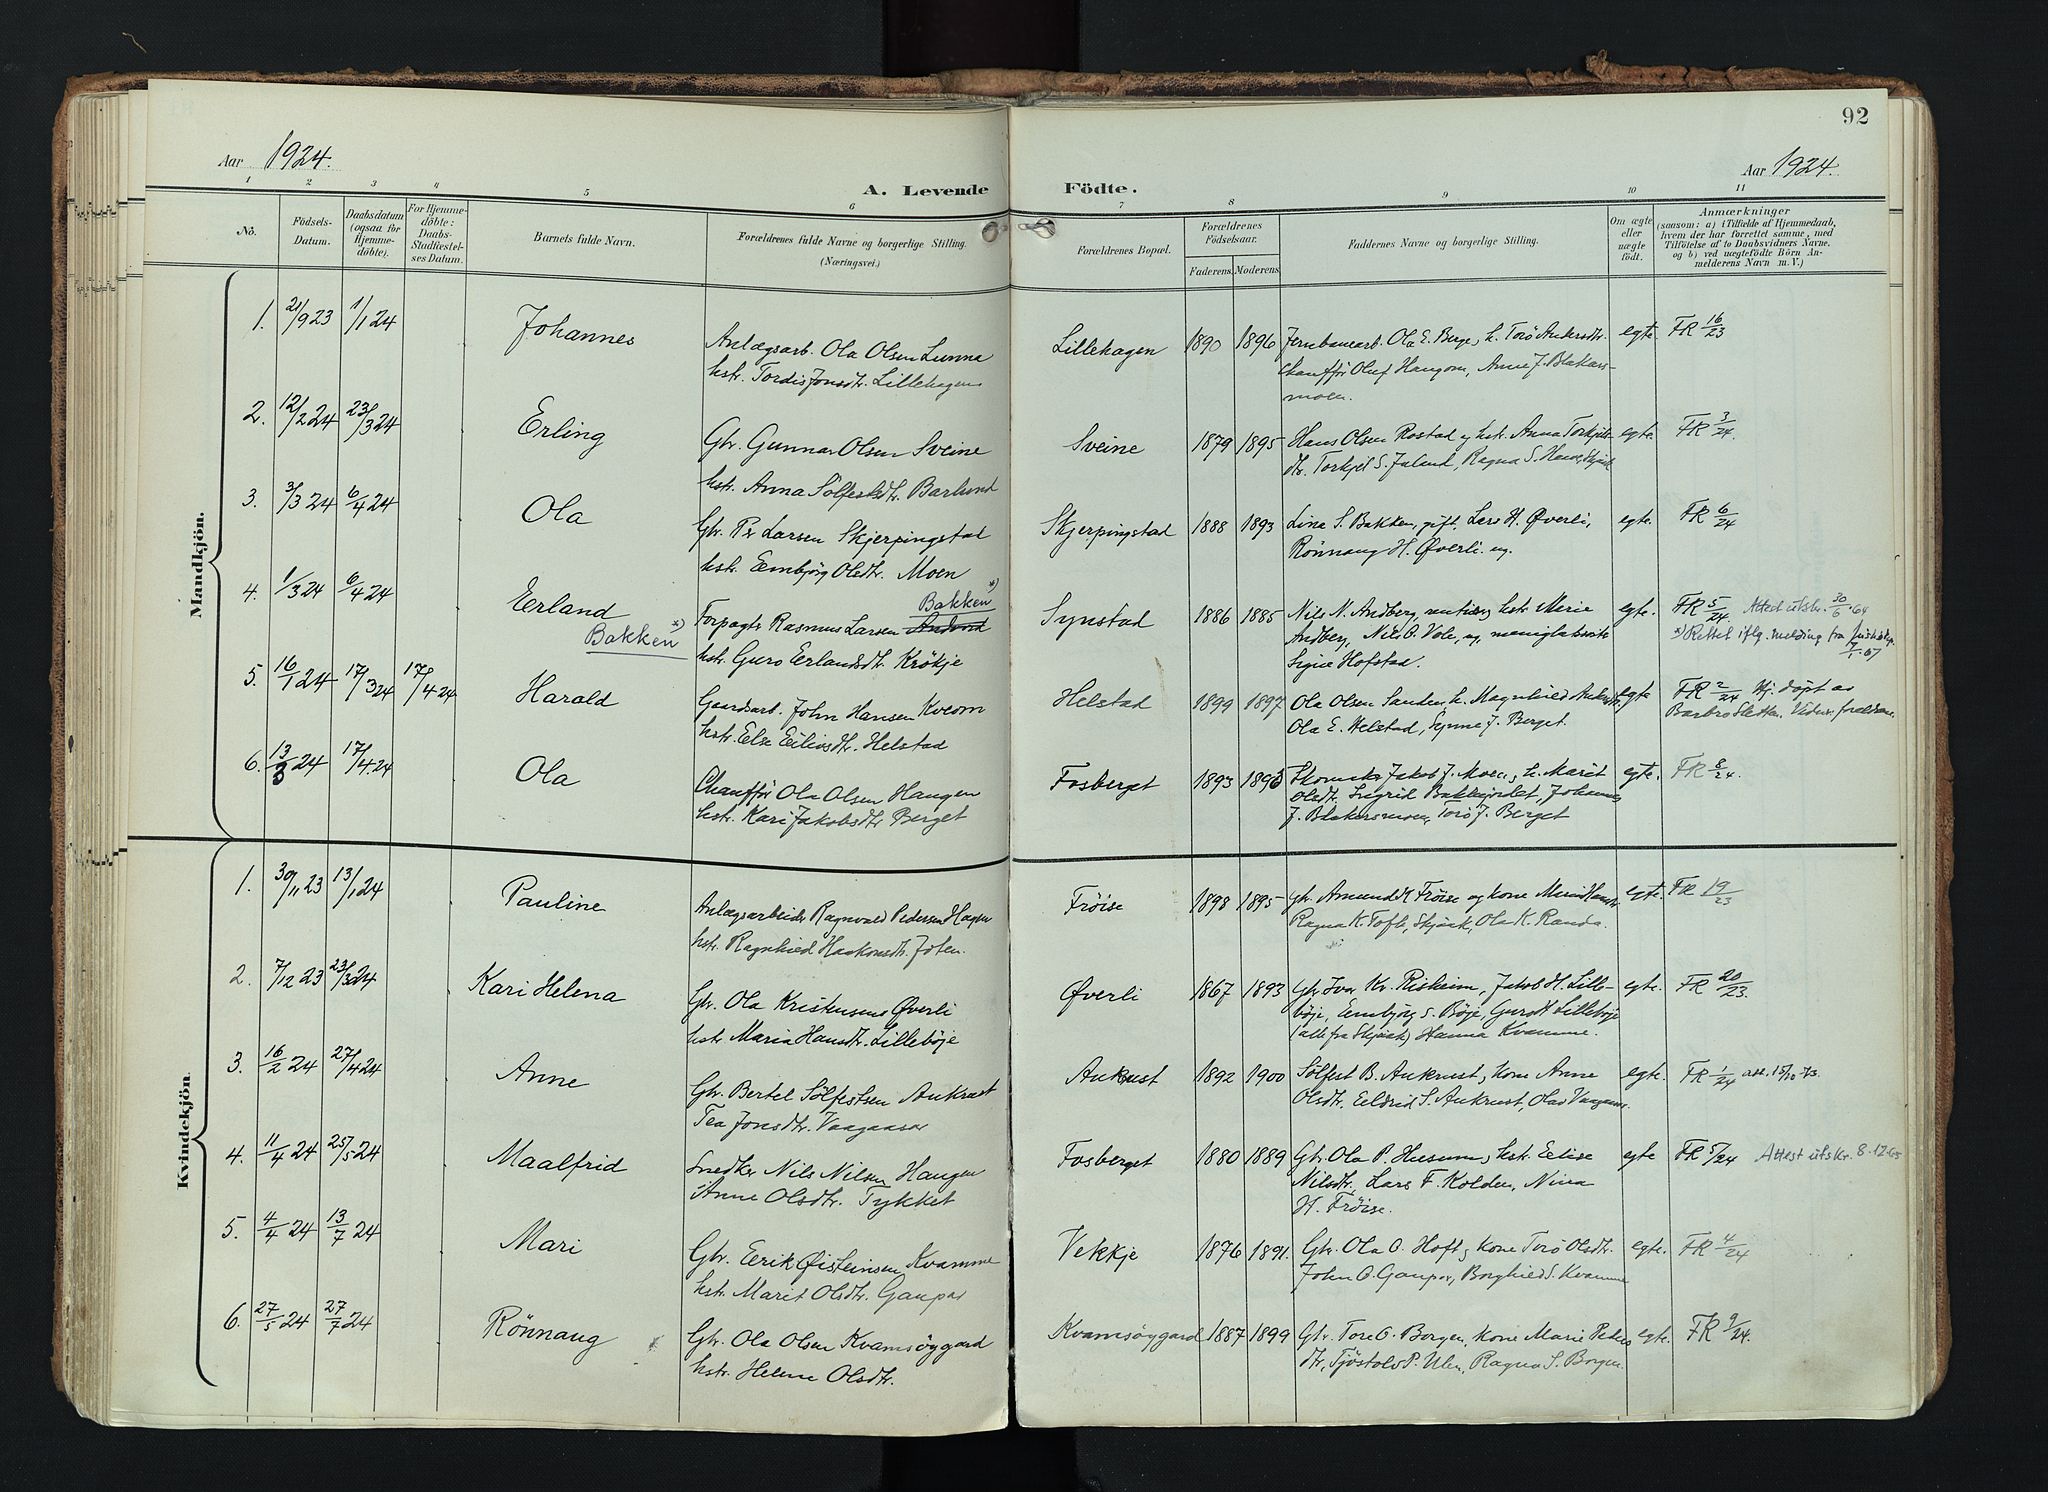 92
Aar 1924.
Aar 1924.
A. Levende Födte.
1 2 3 4 5 6 7 8 9 10 11
No.
Födsels-Datum.
Daabsdatum (ogsaa for Hjemme-döbte).
For Hjemme-döbte: Daabs-Stadfæstel-ses Datum.
Barnets fulde Navn.
Forældrenes fulde Navne og borgerlige Stilling.
(Næringsvei.)
Forældrenes Bopæl.
Forældrenes Födselsaar.
Faderens. Moderens.
Faddernes Navne og borgerlige Stilling.
Om ægte eller uægte födt.
Anmærkninger
(saasom: a) i Tilfælde af Hjemmedaab,
hvem der har forrettet samme, med
Tilföielse af to Daabsvidners Navne,
og b) ved uægtefödte Börn An-
melderens Navn m. V.)
Mandkjön.
1. 21/9 23 1/1 24 Johannes
Anlægsarb. Ola Olsen Lunna
hstr. Tordis Jonsdtr. Lillehagen
Lillehagen 1890 1896
Jernbanearb. Ola E. Berge, h. Torö Andersdtr.
chaufför Oluf Haugom, Anne J. Blakars-
moen.
egte. FR 16/23
2. 12/2 24 23/3 24 Erling
Gbr. Gunnar Olsen Sveine
hstr. Anna Sölfestsdtr. Barlund
Sveine 1879 1895
Hans Olsen Rostad og hstr. Anna Torkjels-
dtr. Torkjel S. Jalund, Ragna S.
egte. FR 3/24.
3. 3/3 24 6/4 24 Ola
Gbr. Pr Larsen Skjerpingstad
hstr. Eembjörg Olsdtr. Moen
Skjerpingstad 1888 1893
Lina S. Bakken, gift. Lars H. Øverli,
Rönnaug H. Øverli. ug.
egte. FR 6/24
4. 1/3 24 6/4 24 Eerland Bakken *)
Forpagter Rasmus Larsen Andvord Bakken *)
hstr. Guro Eerlandsdtr. Krökje
Synstad 1886 1885
Nils N. Andberg, rentier, hstr. Merie
Andberg, Nils O. Vole, ug.
Signe Hofstad.
egte. FR 5/24 Attest utskr. 30/6. 64
*) Rettet iflg. melding fra
5. 16/1 24 17/3 24 17/4 24 Harald
Gaardsarb. John Hansen Kveom
hstr. Else Eilivsdtr. Helstad
Helstad 1899 1897
Ola Olsen Sanden, h. Magnhild
Ola E. Helstad, Synne J. Berget.
egte FR 2/24 Hj. döpt av
Barbro Sletten. Vidner. foreldrene.
6. 13/3 24 17/4. 24 Ola
Chaufför Ola Olsen Haugen
hstr. Kari Jakobsdtr Berget
Fosberget 1893 1896
Skomaker Jakob J. Moen, h. Marit
Olsdtr. Sigrid Bakkegjerdet, Johannes
J. Blakarsmoen, Torö J. Berget
egte. FR 8/24.
Kvindekjön.
1. 30/11 23 13/1 24 Pauline
Anlægsarbeider Ragnvald Pedersen Hagen
hstr. Ragnhild Haakonsdtr. Joten.
Fröise 1898 1895
Gbr. Amund K. Fröise og kone Mari Hansdtr
Ragna K. Toft, Skjåk, Ola K. Randa.
egte. FR 19/23
2. 7/12 23 23/3 24 Kari Helena
Gbr. Ola Kristensens Øverli
hstr. Maria Hansdtr. Lilleböje
Øverli 1867 1893
Gbr. Ivar Kr. Risheim, Jakob H. Lille-
böje, Eembjörg S. Böje, Guro H. Lilleböje
(alle fra Skjåk) Hanna Kvamme.
egte. FR 20/23.
3. 16/2 24 27/4 24 Anne
Gbr. Bertel Sölfestsen Aukrust
Tea Jonsdtr. Vaagaasar
Aukrust 1892 1900
Sölfest B. Aukrust, kone Anne
Olsdtr. Eeldrid S. Aukrust, Olav Vaagaasar.
egte. FR 1/24 att. 15/10-73.
4. 11/4 24 25/5 24 Maalfrid
Snedker Nils Nilsen Haugen
Anne Olsdtr. Tykket
Fosberget 1880 1889
Gbr. Ola P. Heesum, hstr. Eelise
Nilsdtr. Lars F. Kolden, Nina
H. Fröise.
egte FR 5/24 Attest utskr. 8.12.65
5. 4/4 24 13/7 24 Mari
Gbr. Eerik Øisteinsen Kvamme
hstr. Marit Olsdtr. Gaupar
Vekkje 1876 1891.
Gbr. Ola O. Hoft, kone Torö Olsdtr.
John O. Gaupar, Borghild S. Kvamme
egte. FR 4/24
6. 27/5 24 27/7 24 Rönnaug
Gbr. Ola Olsen Kvamsöygard
hstr. Helene Olsdtr.
Kvamsöygard 1887 1899
Gbr. Tore O. Borgen, kone Marie Peders
dtr, Tjöstolv P. Ulen, Ragna S. Borgen.
egte. FR 9/24.